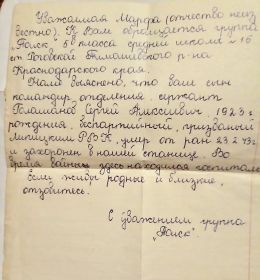 Уважаемая Марфа (отчество неиз
вестно). К Вам обращается группа
„Поиск" 5б класса средней школы №16
ст. Роговской Тимашевского р-на
Краснодарского края.
Нами выяснено, что ваш сын
командир отделения, сержант
Алексеевич, 1923 г.
рождения, беспартийный, призванный
Липецким РВК, умер от ран 23.2.43г.
и захоронен в нашей станице. Во
время войны здесь находился госпиталь
Если живы родные и близкие,
отзовитесь.
С уважением группа
„Поиск".